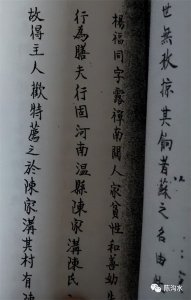 世無敢掠其餉者蘇之名由
楊福同字露禪南關人家貧性和善幼
行為膳夫行固河南溫縣陳家溝陳氏
故得主人歡特薦之於陳家溝其村有
陈沟水